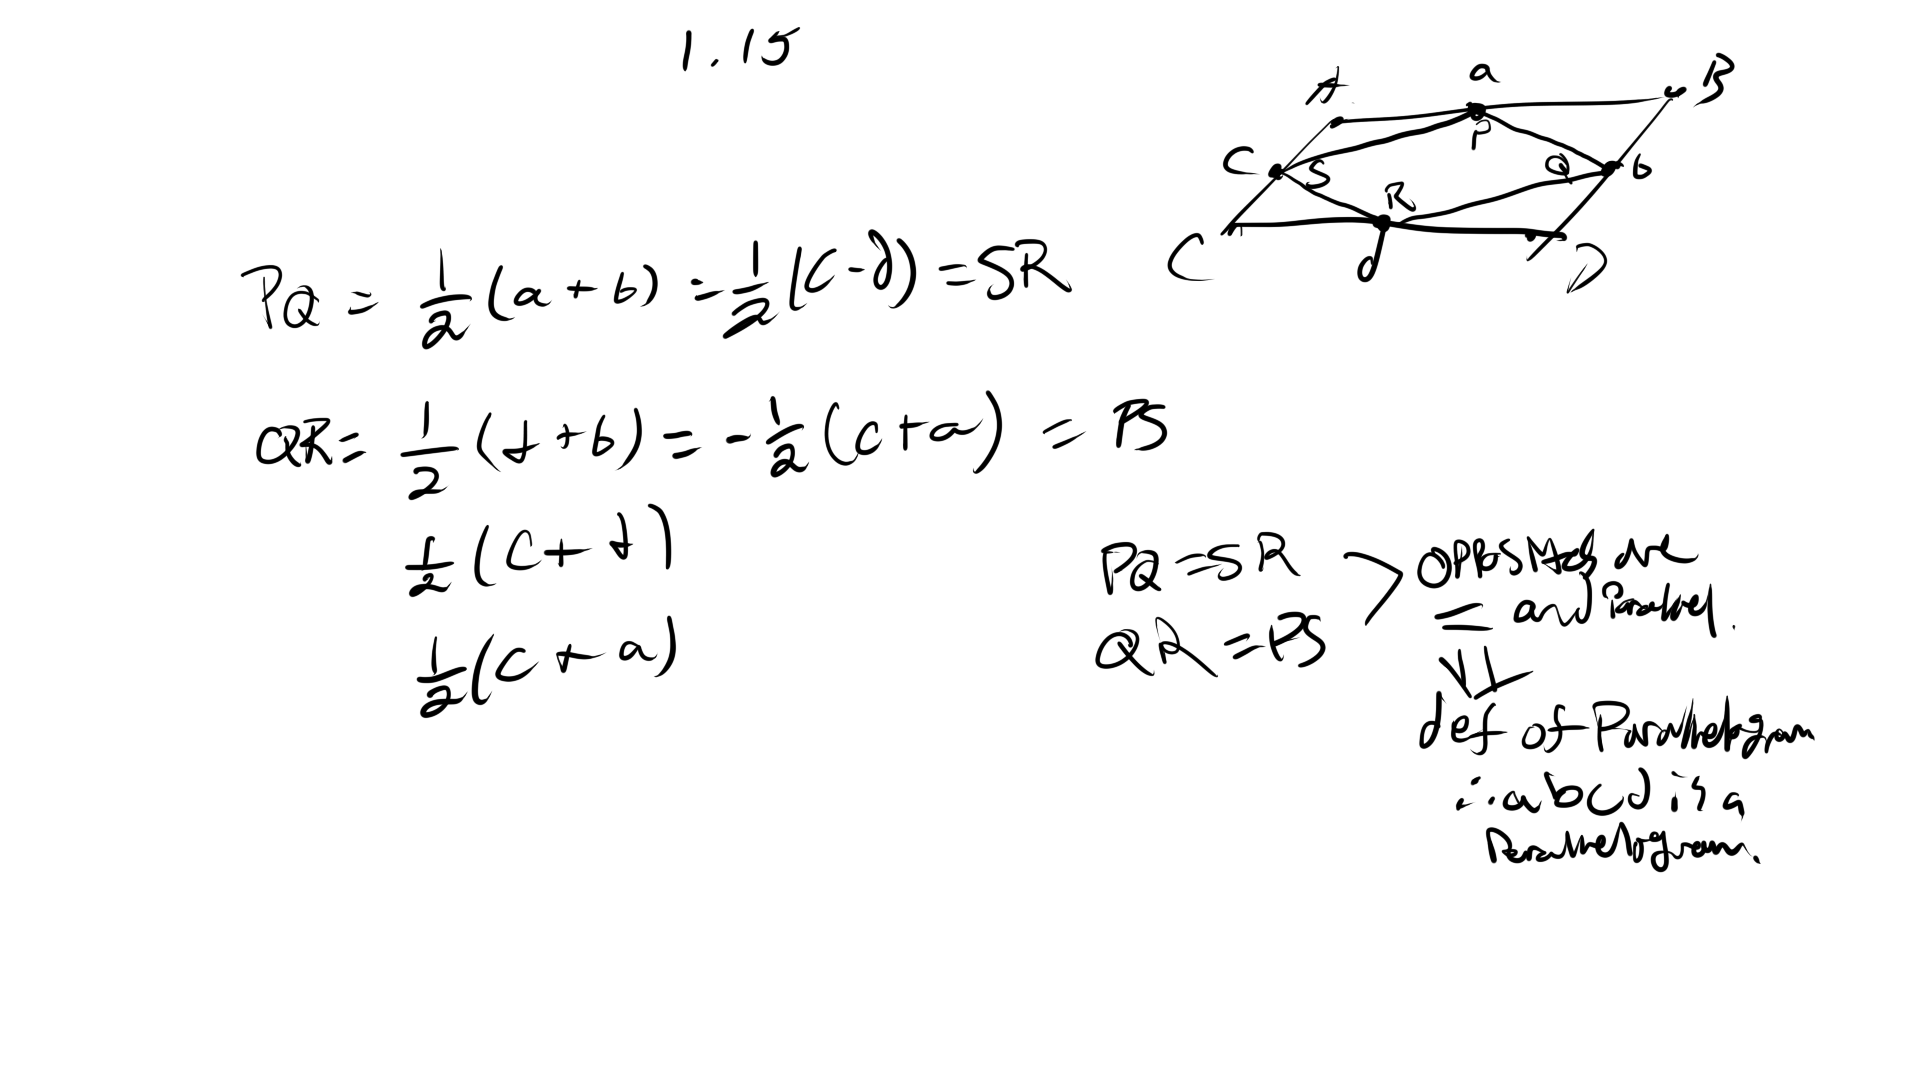 1.15
A a B
P
C S Q b
R
C d D
PQ = 1/2 (a + b) = -1/2 (C - d) = SR
QR = 1/2 (d + b) = -1/2 (c + a) = PS
1/2 (C + d)
1/2 (C + a)
PQ = SR > opposites are
= and Parallel.
QR = PS
def of Parallelogram
∴ abcd is a
Parallelogram.